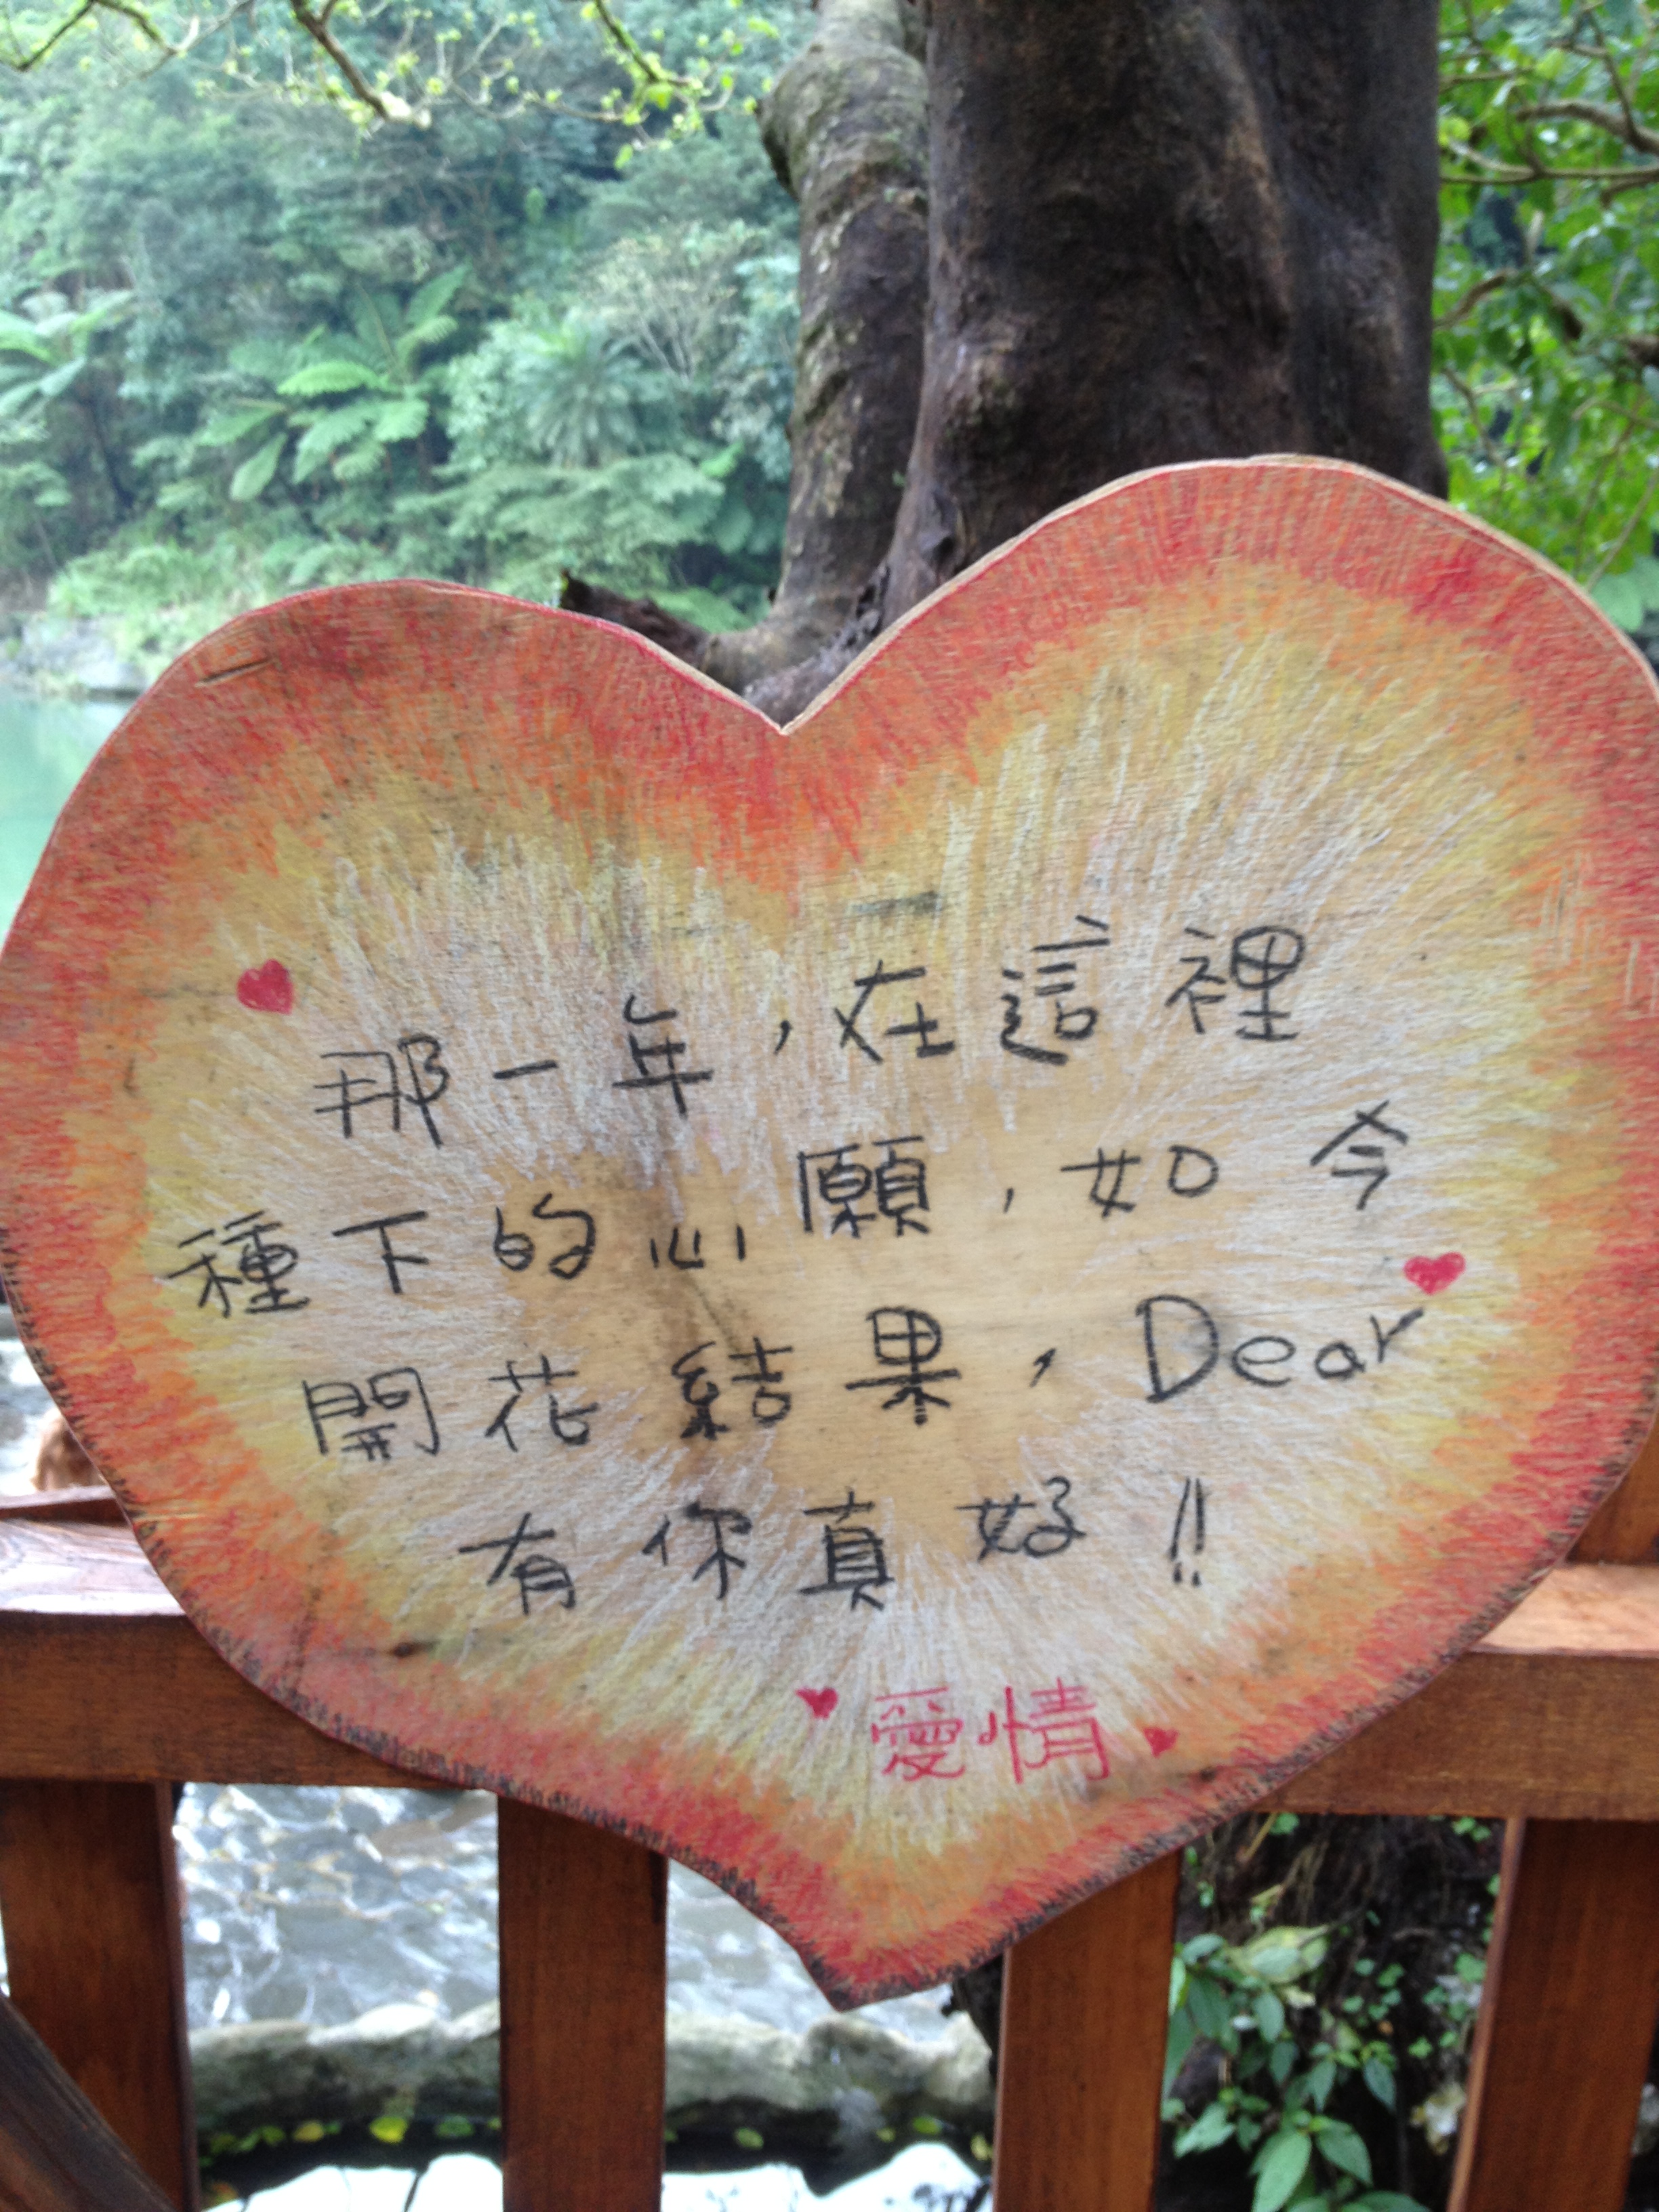 那一年，在這裡
種下的心願，如今
開花結果，Dear
有你真好!!
愛情